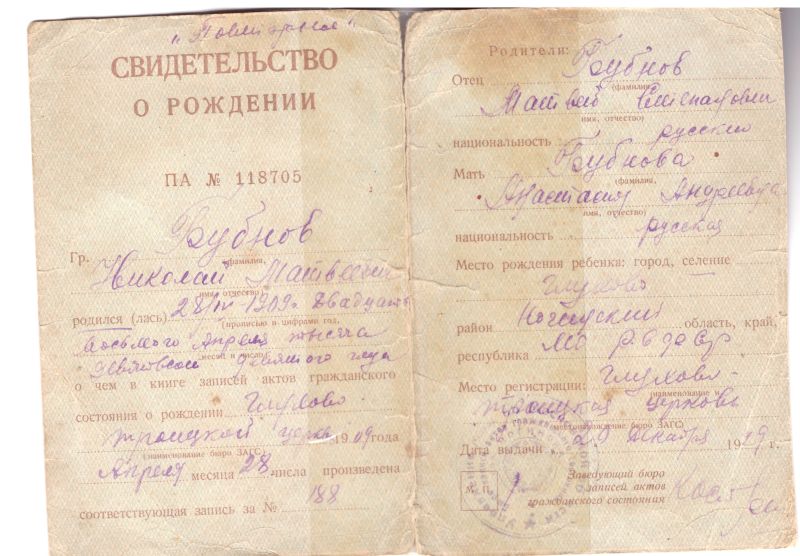 „Повторное"
СВИДЕТЕЛЬСТВО
О РОЖДЕНИИ
ПА № 118705
Бубнов
Гр.
(фамилия,
Николай Матвеевич
имя отчество)
родился (лась) 28/IV 1909г двадцать
(прописью и цифрами год,
восьмого апреля тысяча
месяц и число)
девятьсот девятого года
о чем в книге записей актов гражданского
состояния о рождении Глухово
троицкой церкв 1909 года
(наименование бюро ЗАГС)
Апреля месяца 28 числа произведена
соответствующая запись за № 188
Родители:
Отец Бубнов
(фамилия,
Матвей Степанович
имя, отчество)
национальность русский
Мать Бубнова
(фамилия,
Анастасия Андреевна
имя, отчество)
национальность русская
Место рождения ребенка: город, селение
Глухово
район Ногинский область, край,
республика МО РСФСР
Место регистрации: Глухово-
(наименование и
троицкая церковь
местонахождение бюро ЗАГС)
Дата выдачи 29 декабря 19 г.
М. П.
Заведующий бюро
записей актов
гражданского состояния